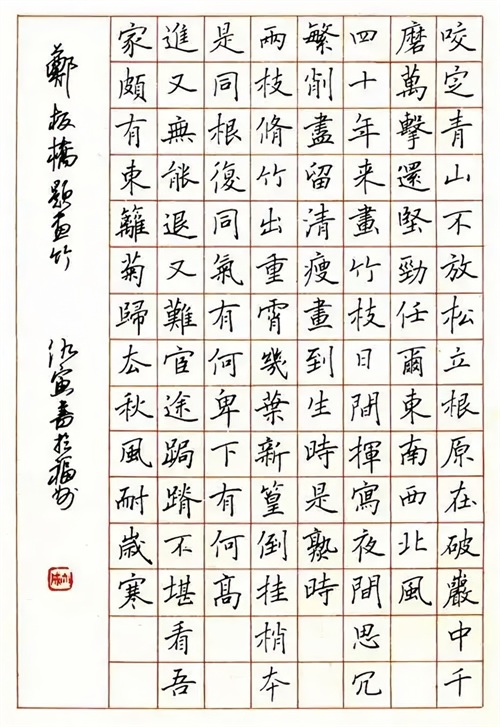 咬定青山不放松立根原在破巖中千
磨萬擊還堅勁任爾東南西北風
四十年来畫竹枝日間揮寫夜間思冗
繁削盡留清瘦畫到生時是熟時
兩枝脩竹出重霄幾葉新篁倒挂梢本
是同根復同氣有何卑下有何高
進又無能退又難宦途跼蹐不堪看吾
家頗有東籬菊歸去秋風耐歲寒
鄭板橋題画竹
仇寅書於福州